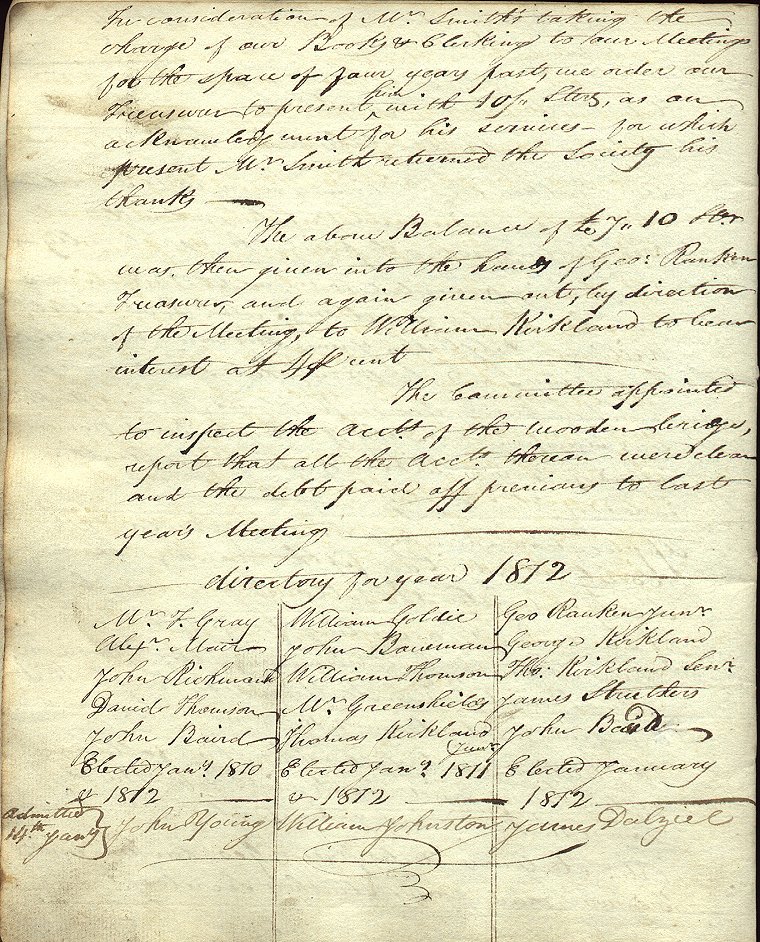 In consideration of Mr Smith's taking the
charge of our Books & Clerking to our Meetings
for the space of four years past, we order our
Treasurer to present him with 10/, Sterg, as an
acknowledgment for his services - for which
present Mr Smith returned the Society his
thanks
The above Balance of £7,, 10 Ster
was then given into the hands of Geo: Ranken
Treasurer, and again given out, by direction
of the Meeting, to William Kirkland to bear
interest at 4 pr Cent
The Committee appointed
to inspect the Accts of the wooden bridge,
report that all the Accts thereon were clear
and the debt paid off previous to last
year's Meeting
directory for year 1812
Mr F. Gray William Goldie Geo Ranken Junr
Alexr Mair John Baweman George Kirkland
John Richmond William Thomson Tho: Kirkland Senr
David Thomson Mr Greenshields James Struthers
John Baird Thomas Kirkland Junr John Baird
Elected Jany 1810 Elected Jany 1811 Elected January
& 1812 & 1812 1812
Admitted 14th Jany John Young William Johnston James Dalziel